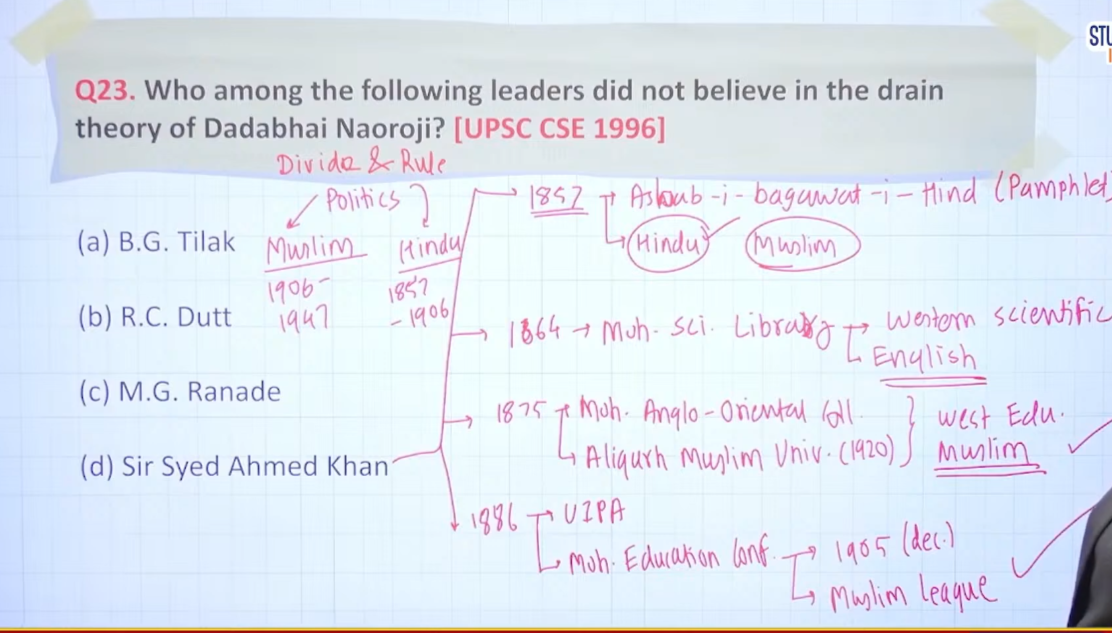 STU
Q23. Who among the following leaders did not believe in the drain
theory of Dadabhai Naoroji? [UPSC CSE 1996]
Divide & Rule
Politics
Muslim
1906-
1947
Hindu
1857
-1906
(a) B.G. Tilak
(b) R.C. Dutt
(c) M.G. Ranade
(d) Sir Syed Ahmed Khan
1857 → Asbab-i-bagawat-i-Hind (Pamphlet)
Hindu Muslim
1864 → Moh. Sci. Library → Western scientific
English
1875 → Moh. Anglo-Oriental Coll.
Aligarh Muslim Univ. (1920)
West Edu.
Muslim
1886 → UIPA
Moh. Education Conf. → 1905 (dec.)
Muslim league